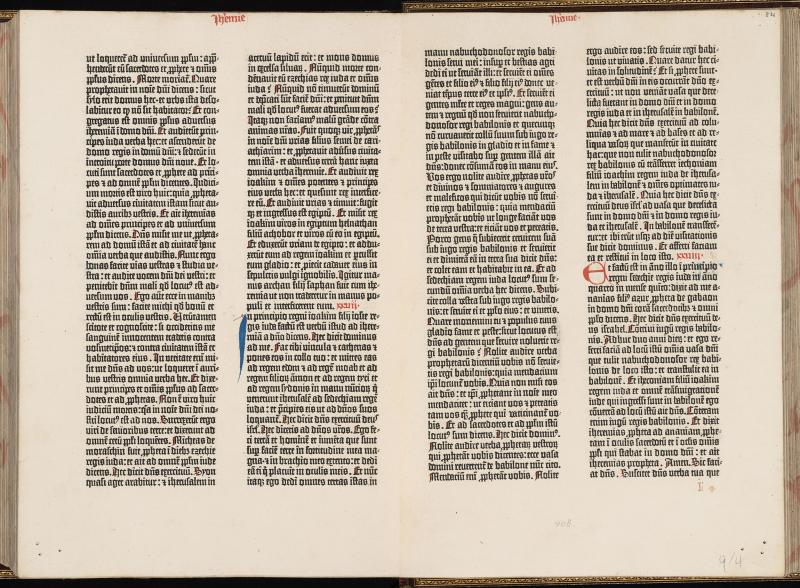 Jheremie
ut loqueret ad universum ppłm: app̄-
henderūt eū sacerdotes et ꝓphete ⁊ omīs
ppłus dicens. Morte moriat. Quare
ꝓphetavit in noīe dñi dicens: sicut
sylo erit domus hec: et urbs ista deso-
labitur eo ꝙ nō sit habitator? Et con-
gregatus est omnis ppłus adversus
iheremiā ī domo dñi. Et audierūt prin-
cipes iuda verba hec: et ascenderūt de
domo regis in domū dñi: ⁊ sederūt in
introitu porte domus dñi nove. Et lo-
cuti sunt sacerdotes et ꝓphete ad prin-
cipes ⁊ ad omnē ppłm dicentes. Judici-
um mortis est viro huic: quia ꝓpheta-
vit adversus civitatem istam sicut au-
distis auribȝ vestris. Et ait iheremias
ad omnes principes et ad universum
ppłm dicens. Dñs misit me ut ꝓpheta-
rem ad domū istā et ad civitatē hanc
omnia verba que audistis. Nunc ergo
bonas facite vias vestras ⁊ studia ve-
stra: et audite vocem dñi dei vestri: et
penitebit dñm mali qd locutus est ad-
versum vos. Ego autē ecce in manibȝ
vestris sum: facite michi qd bonū et
rectū est in oculis vestris. Verūtamen
scitote et cognoscite: ꝙ si occideritis me
sanguinē innocentem tradetis contra
vosmetipsos: ⁊ contra civitatem istā et
habitatores eius. In veritate enī mi-
sit me dñs ad vos: ut loquerer ī auri-
bus vestris omnia verba hec. Et dixe-
runt principes et omnis ppłus ad sacer-
dotes et ad ꝓphetas. Non ē viro huic
iudiciū mortis: qa in noīe dñi dei no-
stri locutus est ad nos. Surrexerūt ergo
viri de senioribus terre: et dixerunt ad
omnē cetū ppli loquētes. Micheas de
morasthim fuit ꝓpheta ī diebȝ ezechie
regis iuda: et ait ad omnē ppłm iude
dicens. Hec dicit dñs exercituū. Syon
quasi ager arabitur: ⁊ iherusalem in
acervū lapidū erit: et mons domus
in excelsa silvarū. Nunquid morte con-
dēnavit eū ezechias rex iuda et omīs
iuda? Nunquid nō timuerūt dominū
et dp̄cati sūt faciē dñi: et penituit dñm
mali qd locutus fuerat adversum eos?
Itaqȝ non faciamus malū grāde cōtra
animas nr̄as. Fuit quoqȝ vir ꝓphetās
in noīe dñi urias filius semei de cari-
athiarim: et ꝓphetavit adversus civita-
tem istā et adversus terrā hanc iuxta
omnia verba iheremie. Et audivit rex
ioakim ⁊ omēs potentes ⁊ principes
eius verba hec: et quesivit rex interfice-
re eū. Et audivit urias ⁊ timuit: fugit-
qȝ et ingressus est egiptū. Et misit rex
ioakim viros in egiptum helnathan
filiū achobor et viros cū eo in egiptū.
Et eduxerūt uriam de egipto: et addu-
xerūt eum ad regem ioakim et percussit
eum gladio: et ꝓiecit cadaver eius in
sepulcris vulgi ignobilis. Igitur ma-
nus aychan filij saphan fuit cum ihe-
remia ut non traderetur in manus po-
puli et interficerent eum. xxvij
In principio regni ioakim filij iosie re-
gis iuda: factū est verbū istud ad ihere-
miā a dño dicens. Hec dicit dominus
ad me. Fac tibi vincula ⁊ cathenas ⁊
pones eas in collo tuo: et mittes eas
ad regem edom ⁊ ad regē moab et ad
regem filiorū āmon et ad regem tyri et
ad regem sydonis in manu nūcioꝝ q̄
venerunt iherusalē ad sedechiam regē
iuda: et p̄cipies eis ut ad dños suos
loquant. Hec dicit dñs exercituū deus
isrl. Hec dicetis ad dños vr̄os. Ego fe-
ci terrā et homines et iumēta que sunt
sup faciē terre in fortitudine mea ma-
gna ⁊ in brachio meo extento: et dedi
eā ei q̄ placuit in oculis meis. Et nūc
itaqȝ ego dedi omnes terras istas in
Jheremie
84
manu nabuchodonosor regis babi-
lonis servi mei: insup et bestias agri
dedi ei ut serviāt illi: et servient ei omēs
gentes et filio eiꝰ ⁊ filio filij eiꝰ donec ve-
niat tempus terre eiꝰ et ipsiꝰ. Et servient ei
gentes multe et reges magni: gens au-
tem ⁊ regnū qd non servierit nabuch-
odonosor regi babilonis et quicunqȝ
nō curvaverit collū suum sub iugo re-
gis babilonis in gladio et in fame ⁊
in peste visitabo sup gentem illā ait
dñs: donec cōsumā eos in manu eiꝰ.
Vos ergo nolite audire ꝓphetas vr̄os
et divinos ⁊ somniatores ⁊ augures
et maleficos qui dicūt vobis nō servi-
etis regi babilonis: quia mendaciū
prophetāt vobis ut longe faciant vos
de terra vestra: et eiciāt vos et pereatis.
Porro gens q̄ subiecerit cervicem suā
sub iugo regis babilonis et servierit
ei dimittā eā in terra sua dicit dñs:
et colet eam et habitabit in ea. Et ad
sedechiam regem iuda locutus sum se-
cundū omnia verba hec dicens. Subi-
cite colla vestra sub iugo regis babilo-
nis: et servite ei et pplo eius: et vivetis.
Quare moriemini tu ⁊ populus tuus
gladio fame et peste: sicut locutus est
dñs ad gentem que servire noluerit re-
gi babilonis? Nolite audire verba
prophetarū dicentiū vobis nō servietis
regi babilonis: quia mendacium
ipi locunt vobis. Quia non misi eos
ait dñs: et ipi ꝓphetant in noīe meo
mendaciter: ut eiciant vos ⁊ pereatis
tam vos qȝ ꝓphete qui vaticinant vo-
bis. Et ad sacerdotes et ad ppłm istū
locutus sum dicens. Hec dicit dominꝰ.
Nolite audire verba ꝓphetarū vestroꝝ
qui ꝓphetāt vobis dicentes: ecce vasa
domini revertentur de babilone nūc cito.
Mendaciū enī ꝓphetant vobis. Nolite
ergo audire eos: sed servite regi babi-
lonis ut vivatis. Quare datur hec ci-
vitas in solitudinē? Et si ꝓphete sunt
et est verbū dñi in eis occurrāt dño ex-
ercituū: ut non veniant vasa que dere-
licta fuerant in domo dñi et in domo
regis iuda et in iherusalē in babilonē.
Quia hec dicit dñs exercituū ad colu-
mnas ⁊ ad mare ⁊ ad bases et ad re-
liqua vasoꝝ que manserūt in civitate
hac: que non tulit nabuchodonosor
rex babilonis cū trāsferret iechoniam
filiū ioachim regem iuda de iherusa-
lem in babilonē ⁊ omēs optimates iu-
da ⁊ iherusalē. Quia hec dicit dñs ex-
ercituū deus isrl ad vasa que derelicta
sunt in domo dñi ⁊ in domo regis iu-
da et iherusalē. In babilonē transferē-
tur: et ibi erūt usqȝ ad diē visitationis
sue dicit dominus. Et afferri faciam
ea et restitui in loco isto. xxviij
Et factū est in āno illo ī principio
regni sedechie regis iuda in āno
quarto in mense quīto: dixit ad me a-
nanias filiꝰ azur ꝓpheta de gabaon
in domo dñi corā sacerdotibȝ ⁊ omni
pplo dicens. Hec dicit dñs exercituū de-
us israhel. Cōtrivi iugū regis babilo-
nis. Adhuc duo anni dieꝝ: et ego re-
ferri faciā ad locū istū oīa vasa dñi
que tulit nabuchodonosor rex babi-
lonis de loco isto: et transtulit ea in
babilonē. Et iechoniam filiū ioachim
regem iuda et omnē trāsmigrationem
iude qui ingressi sunt in babilonē ego
cōvertā ad locū istū ait dñs. Cōteram
enim iugū regis babilonis. Et dixit
iheremias ꝓpheta ad ananiam ꝓphe-
tam ī oculis sacerdotū et ī oculis omīs
ppli qui stabat in domo dñi: et ait
iheremias propheta. Amen. Sic faci-
at dñs. Suscitet dñs verba tua que
408
9/4